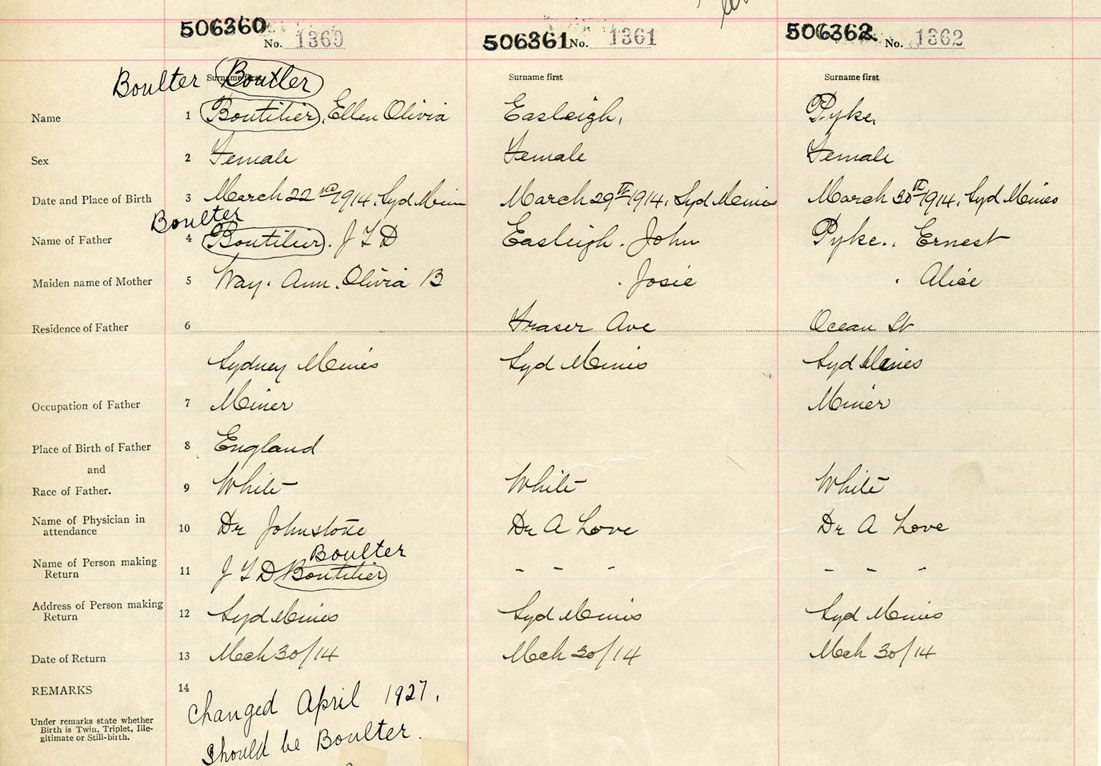 506360 No. 1360 506361 No. 1361 506362 No. 1362
Boulter Boutler Surname first Surname first Surname first
Name 1 Boutilier, Ellen Olivia Easleigh, Pyke,
Sex 2 Female Female Female
Date and Place of Birth 3 March 22nd 1914, Syd Mines March 29th 1914, Syd Mines March 30th 1914, Syd Mines
Boulter
Name of Father 4 Boutilier. J T D Easleigh. John Pyke. Ernest
Maiden name of Mother 5 Way. Ann. Olivia B . Josie . Alice
Residence of Father 6 Fraser Ave Ocean St
Sydney Mines Syd Mines Syd Mines
Occupation of Father 7 Miner Miner
Place of Birth of Father 8 England
and
Race of Father. 9 White White White
Name of Physician in attendance 10 Dr Johnstone Dr A Love Dr A Love
Boulter
Name of Person making Return 11 J T D Boutilier - - - - - -
Address of Person making Return 12 Syd Mines Syd Mines Syd Mines
Date of Return 13 Mch 30/14 Mch 30/14 Mch 30/14
REMARKS 14 Changed April 1927.
Under remarks state whether
Birth is Twin, Triplet, Ille-
gitimate or Still-birth.
Should be Boulter.